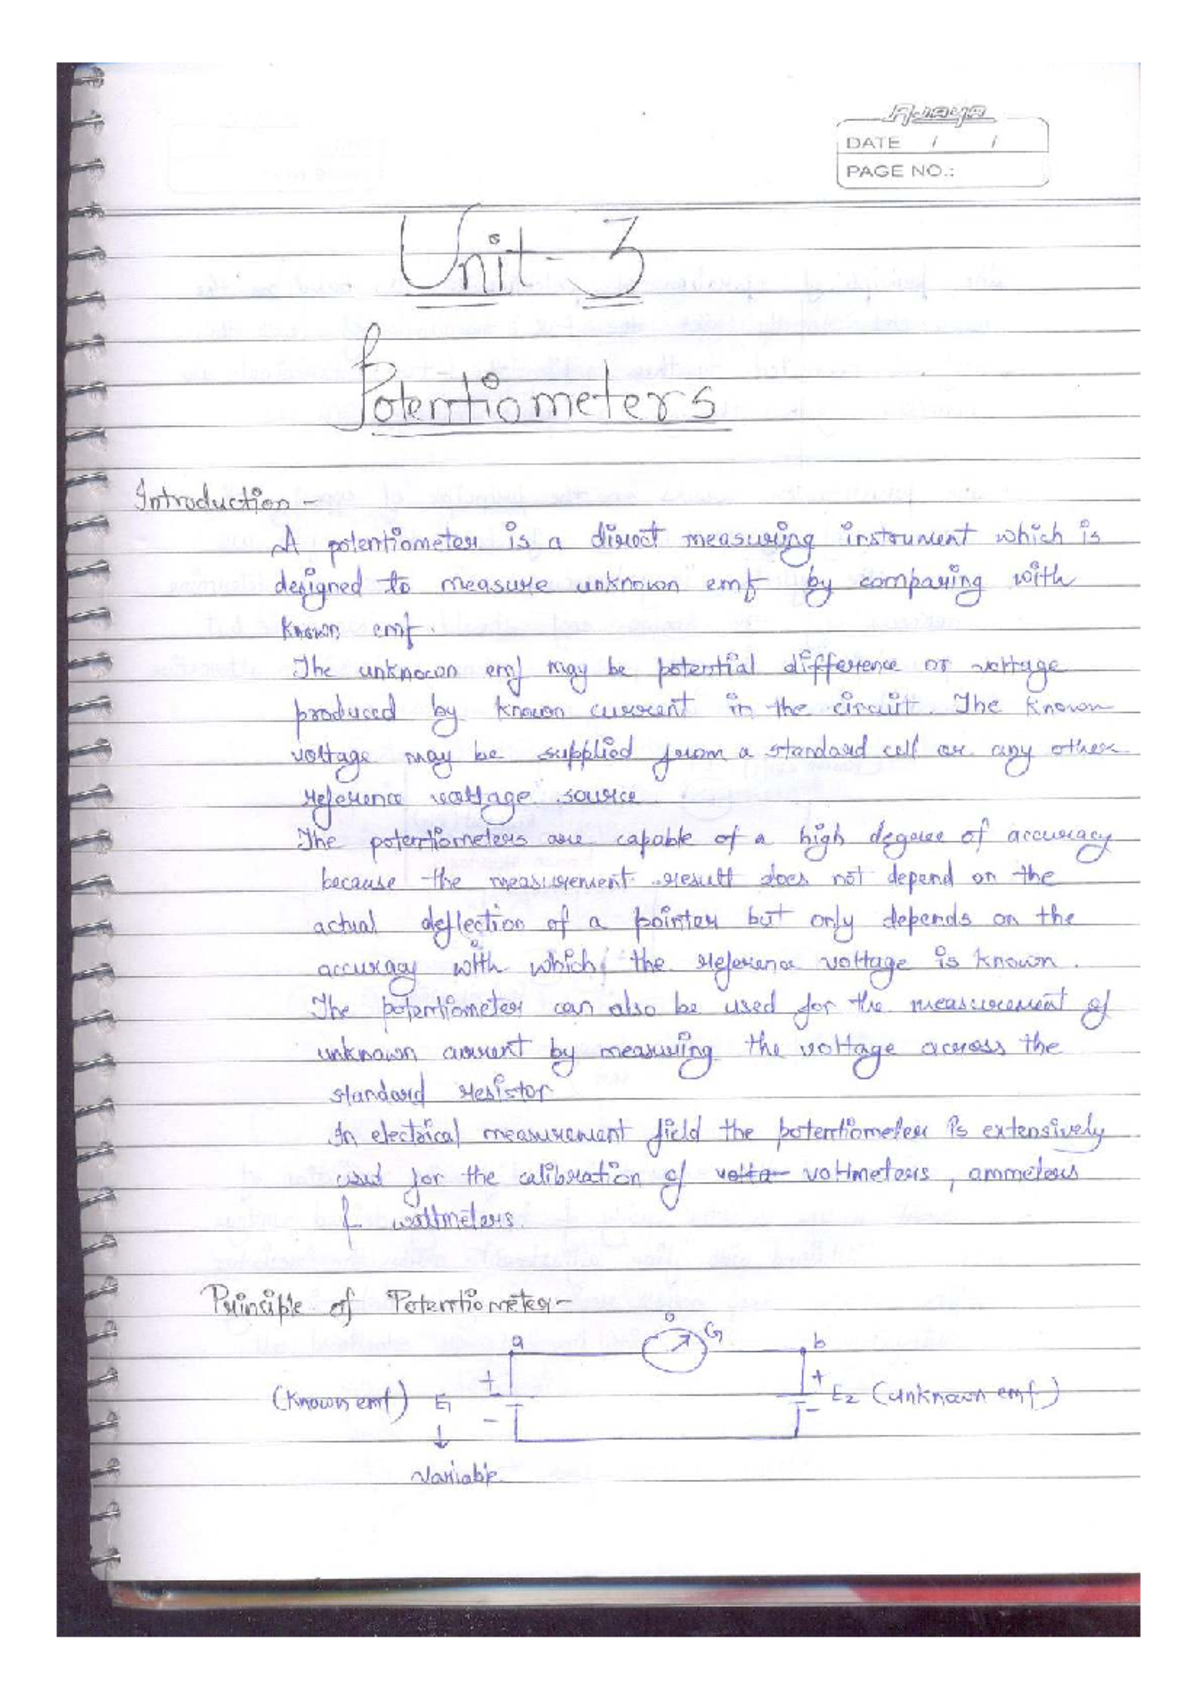 Ajaya
DATE / /
PAGE NO.:
Unit-3
Potentiometers
Introduction -
A potentiometer is a direct measuring instrument which is
designed to measure unknown emf by comparing with
known emf.
The unknown emf may be potential difference or voltage
produced by known current in the circuit. The known
voltage may be supplied from a standard cell or any other
reference voltage source
The potentiometers are capable of a high degree of accuracy
because the measurement result does not depend on the
actual deflection of a pointer but only depends on the
accuracy with which the reference voltage is known.
The potentiometer can also be used for the measurement of
unknown current by measuring the voltage across the
standard resistor
In electrical measurement field the potentiometer is extensively
used for the calibration of volta voltmeters, ammeters
& wattmeters.
Principle of Potentiometer-
a G b
(Known emf) E1 + - + - E2 (unknown emf)
Variable